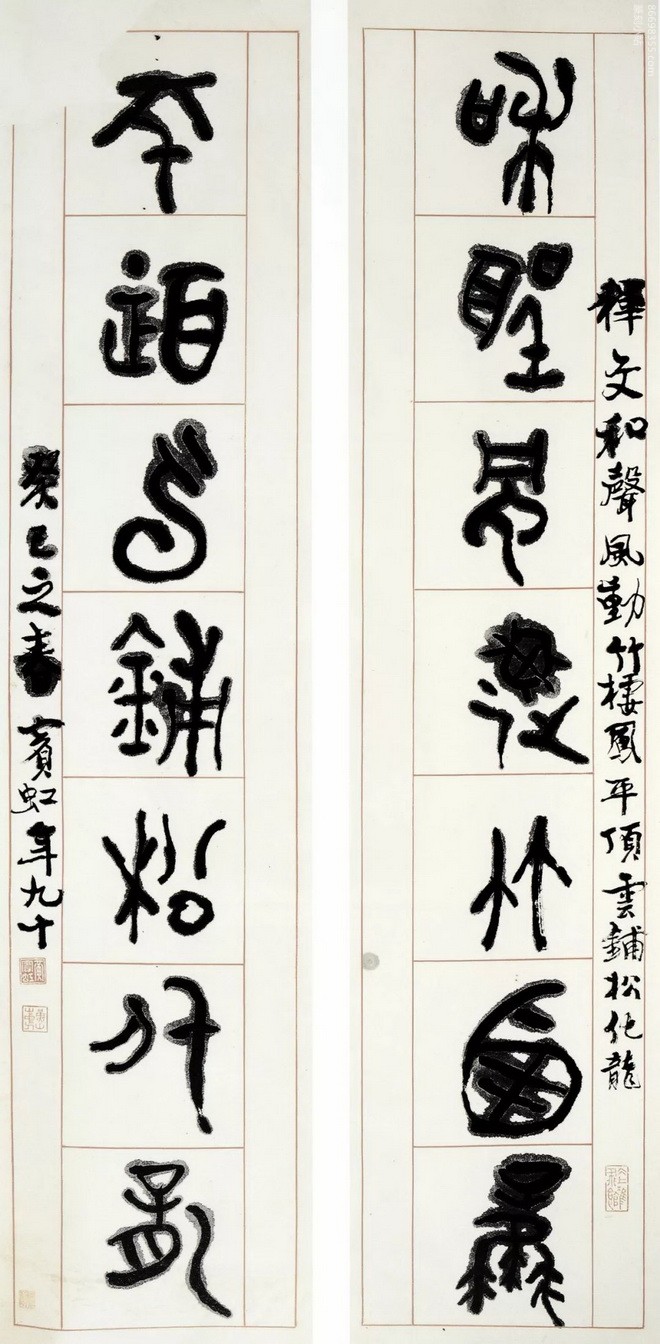 釋文和聲風動竹棲鳳平頂雲鋪松化龍
和聲風動竹棲鳳
平頂雲鋪松化龍
癸巳之春賓虹年九十